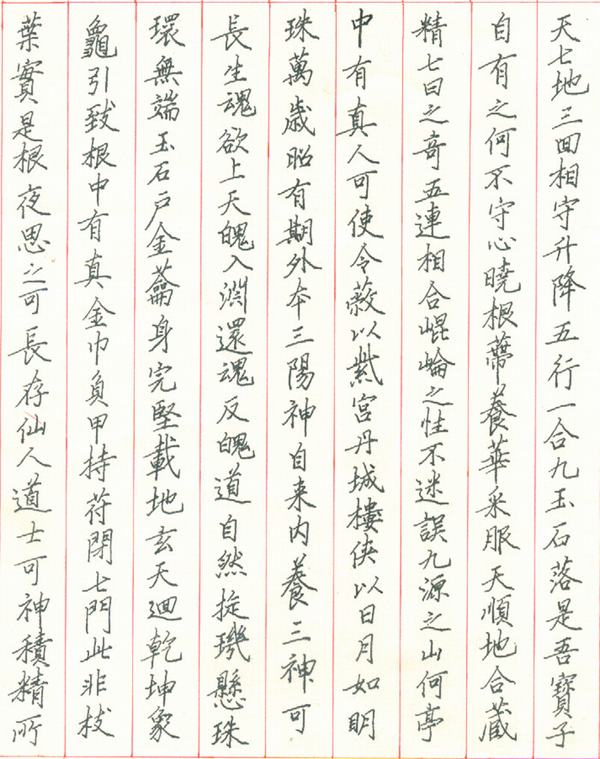 天七地三回相守升降五行一合九玉石落是吾寶子
自有之何不守心曉根蒂養華采服天順地合藏
精七日之奇五連相合崐崘之性不迷誤九源之山何亭
中有真人可使令蔽以紫宮丹城樓俠以日月如明
珠萬歲昭有期外本三陽神自来内養三神可
長生魂欲上天魄入淵還魂反魄道自然旋璣懸珠
環無端玉石戶金蘥身完堅載地玄天迴乾坤象
龜引致根中有真金巾負甲持苻閉七門此非枝
葉實是根夜思之可長存仙人道士可神積精所